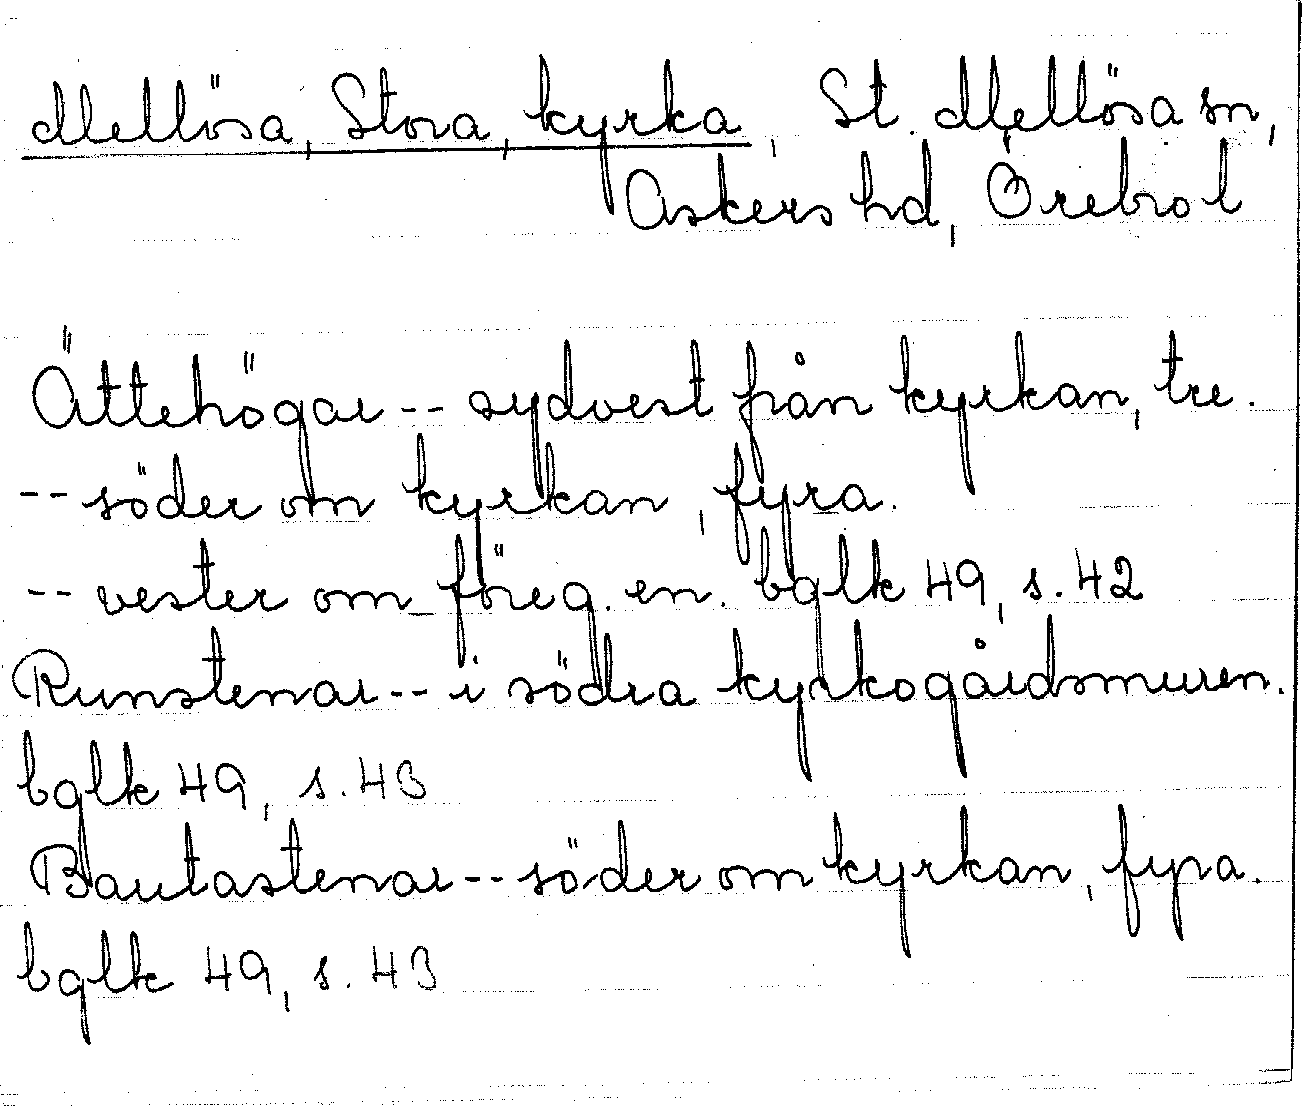 Mellösa, Stora, kyrka, St. Mellösa sn,
Askers hd, Örebro l
Ättehögar -- sydvest från kyrkan, tre.
-- söder om kyrkan, fyra.
-- vester om föreg. en. bglk 49, s. 42
Runstenar -- i södra kyrkogårdsmuren.
bglk 49, s. 43
Bautastenar -- söder om kyrkan, fyra.
bglk 49, s. 43